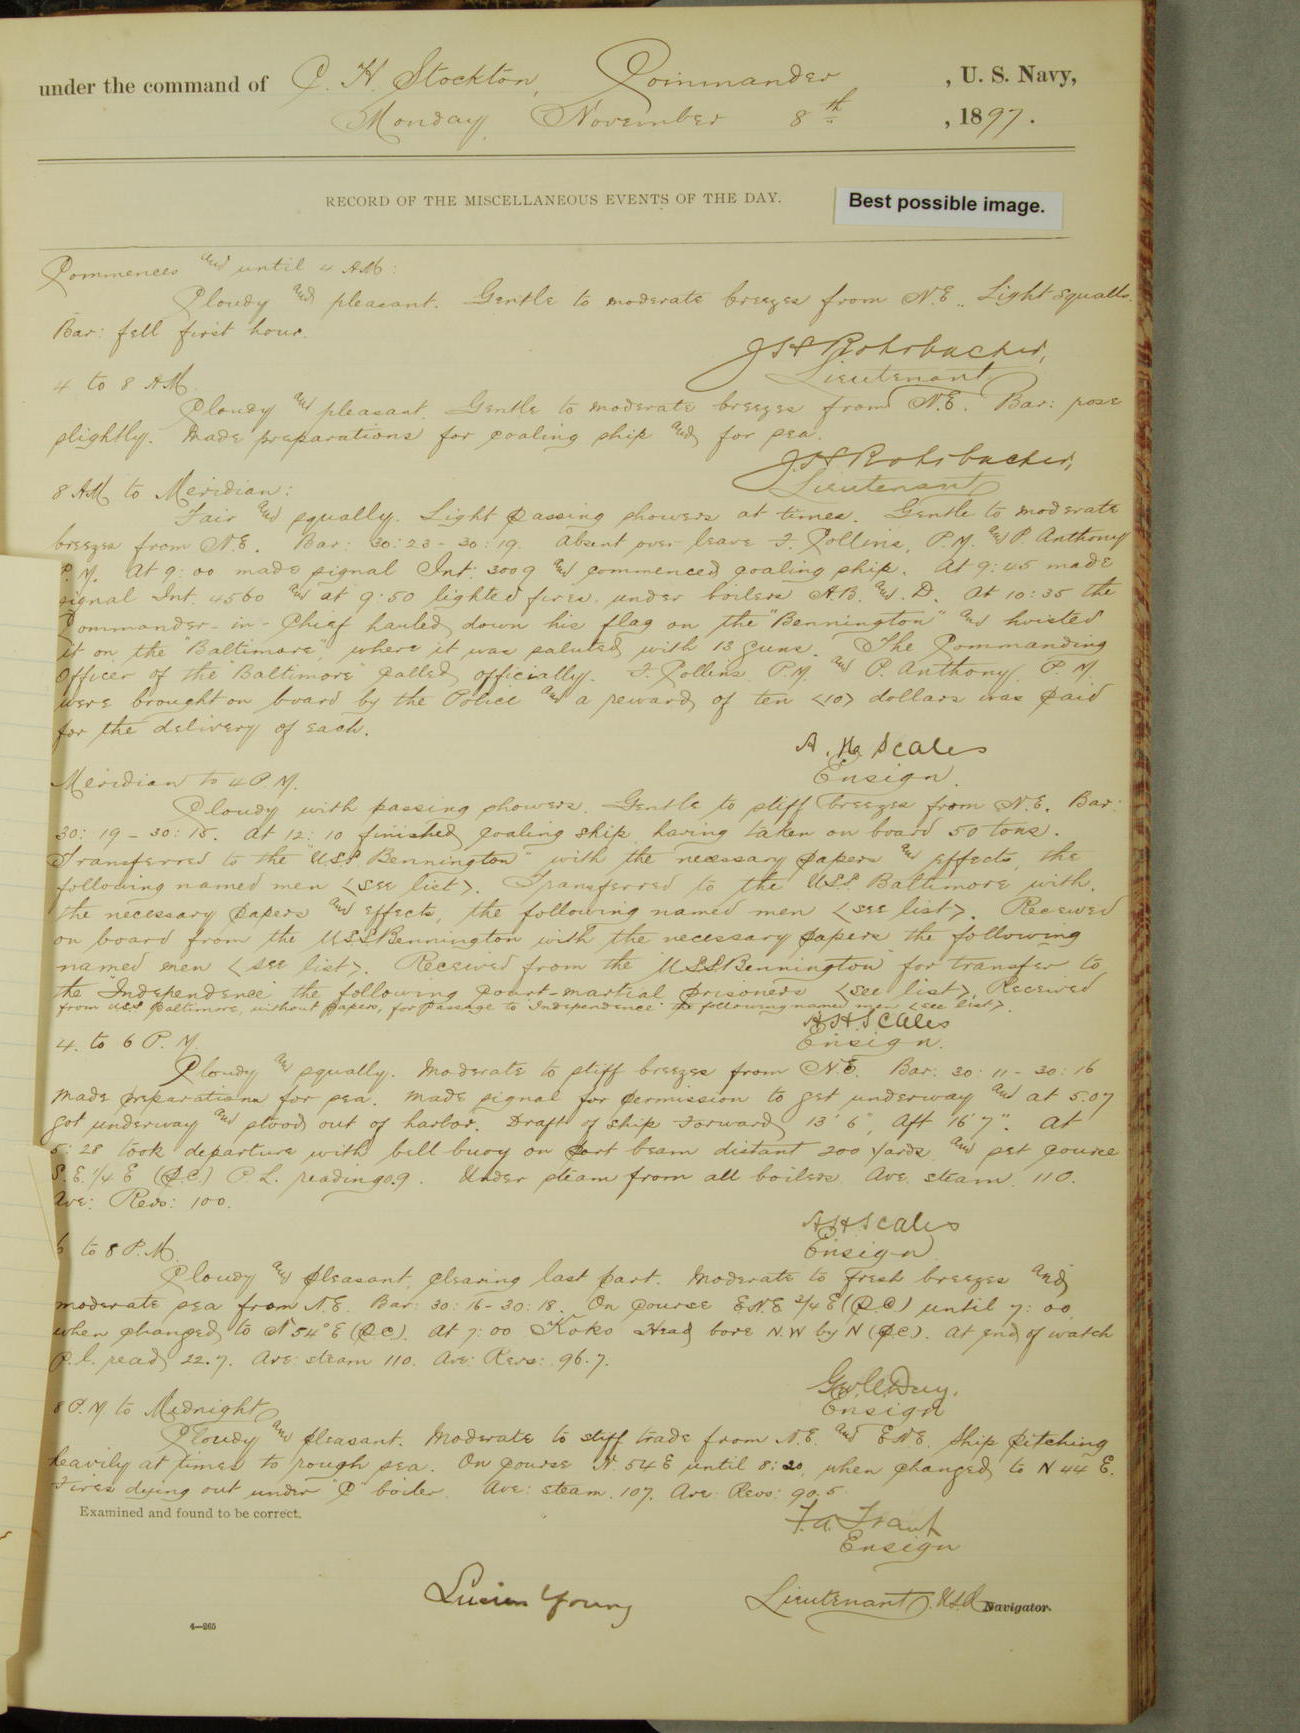 under the command of C. H. Stockton, Commander , U. S. Navy,
Monday, November 8th , 1897.
RECORD OF THE MISCELLANEOUS EVENTS OF THE DAY.
Best possible image.
Commences and until 4 AM:
Cloudy and pleasant. Gentle to moderate breezes from N.E.. Light squalls.
Bar: fell first hour.
J H Rohrbacher,
Lieutenant
4 to 8 AM.
Cloudy and pleasant. Gentle to moderate breezes from N.E. Bar: rose
slightly. Made preparations for coaling ship and for sea.
J H Rohrbacher,
Lieutenant
8 AM to Meridian:
Fair and squally. Light passing showers at times. Gentle to moderate
breezes from N.E. Bar: 30:23-30:19. Absent over leave F. Collins, P.M. and P. Anthony
P.M. At 9:00 made signal Int. 3009 and commenced coaling ship. At 9:45 made
signal Int. 4560 and at 9:50 lighted fires under boilers A.B. and D. At 10:35 the
Commander-in-Chief hauled down his flag on the "Bennington" and hoisted
it on the "Baltimore," where it was saluted with 13 guns. The Commanding
Officer of the "Baltimore" called officially. F. Collins P.M. and P. Anthony P.M.
were brought on board by the Police and a reward of ten <10> dollars was paid
for the delivery of each.
A. H. Scales
Ensign.
Meridian to 4 P.M.
Cloudy with passing showers. Gentle to stiff breezes from N.E. Bar:
30:19-30:15. At 12:10 finished coaling ship having taken on board 50 tons.
Transferred to the "U.S.S. Bennington" with the necessary papers and effects, the
following named men <see list>. Transferred to the U.S.S. Baltimore with
the necessary papers and effects, the following named men <see list>. Received
on board from the U.S.S. Bennington with the necessary papers the following
named men <see list>. Received from the "U.S.S. Bennington" for transfer to
the "Independence" the following court-martial prisoners <see list> Received
from U.S.S. Baltimore, without papers, for Passage to "Independence" the following named men <see list>.
A H Scales
Ensign.
4 to 6 P.M.
Cloudy and squally. Moderate to stiff breezes from N.E. Bar: 30:11-30:16
Made preparations for sea. Made signal for permission to get underway and at 5.07
got underway and stood out of harbor. Draft of ship Forward 13' 6", Aft 16' 7". At
5:28 took departure with bell buoy on port beam distant 200 yards and set course
S.E. 1/4 E (P.C.) P.L. reading 0.9. Under steam from all boilers. Ave. steam. 110.
Ave: Revs: 100.
A H Scales
Ensign.
6 to 8 P.M.
Cloudy and pleasant, clearing last part. Moderate to fresh breezes and
moderate sea from N.E. Bar: 30:16-30:18. On course E.N.E 3/4 E (P.C.) until 7:00
when changed to N 54° E (P.C.). At 7:00 Koko Head bore N.W by N (P.C.). At end of watch
P.L. read 22.7. Ave: steam 110. Ave: Revs: 96.7.
Geo. C. Day,
Ensign
8 P.M. to Midnight
Cloudy and pleasant. Moderate to stiff trade from N.E. and E.N.E. Ship pitching
heavily at times to rough sea. On course N. 54 E until 8:20, when changed to N 44 E.
Fires dying out under "C" boiler. Ave: steam. 107. Ave: Revs: 90.5
F. A. Traut
Ensign
Examined and found to be correct.
Lucien Young Lieutenant, U.S.N. Navigator.
4—265